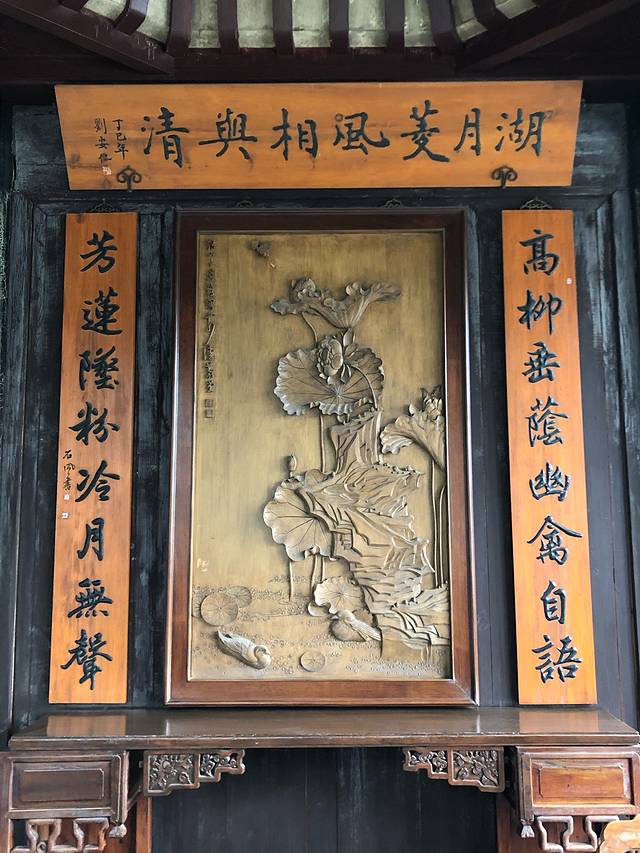 湖月菱風相與清
丁巳年
高柳垂蔭幽禽自語
芳蓮墜粉冷月無聲